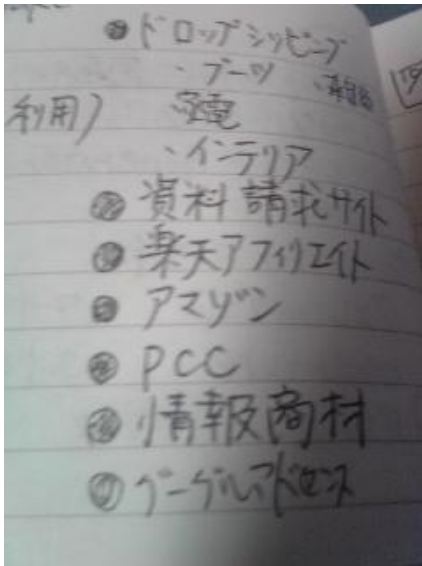 ドロップシッピング
・ブーツ
利用) 家電
・インテリア
資料請求サイト
楽天アフィリエイト
アマゾン
PCC
情報商材
グーグルアドセンス